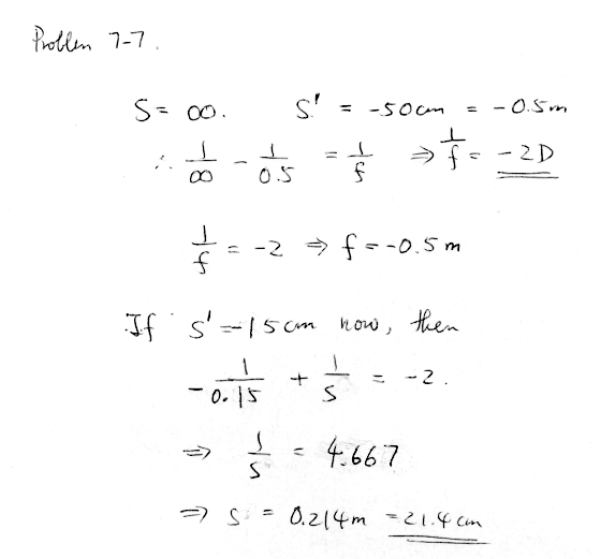 Problem 7-7.
S = ∞. S' = -50cm = -0.5m
∴ 1/∞ - 1/0.5 = 1/f ⇒ 1/f = -2D
1/f = -2 ⇒ f = -0.5m
If s' = -15cm now, then
-1/0.15 + 1/S = -2.
⇒ 1/S = 4.667
⇒ S = 0.214m = 21.4cm